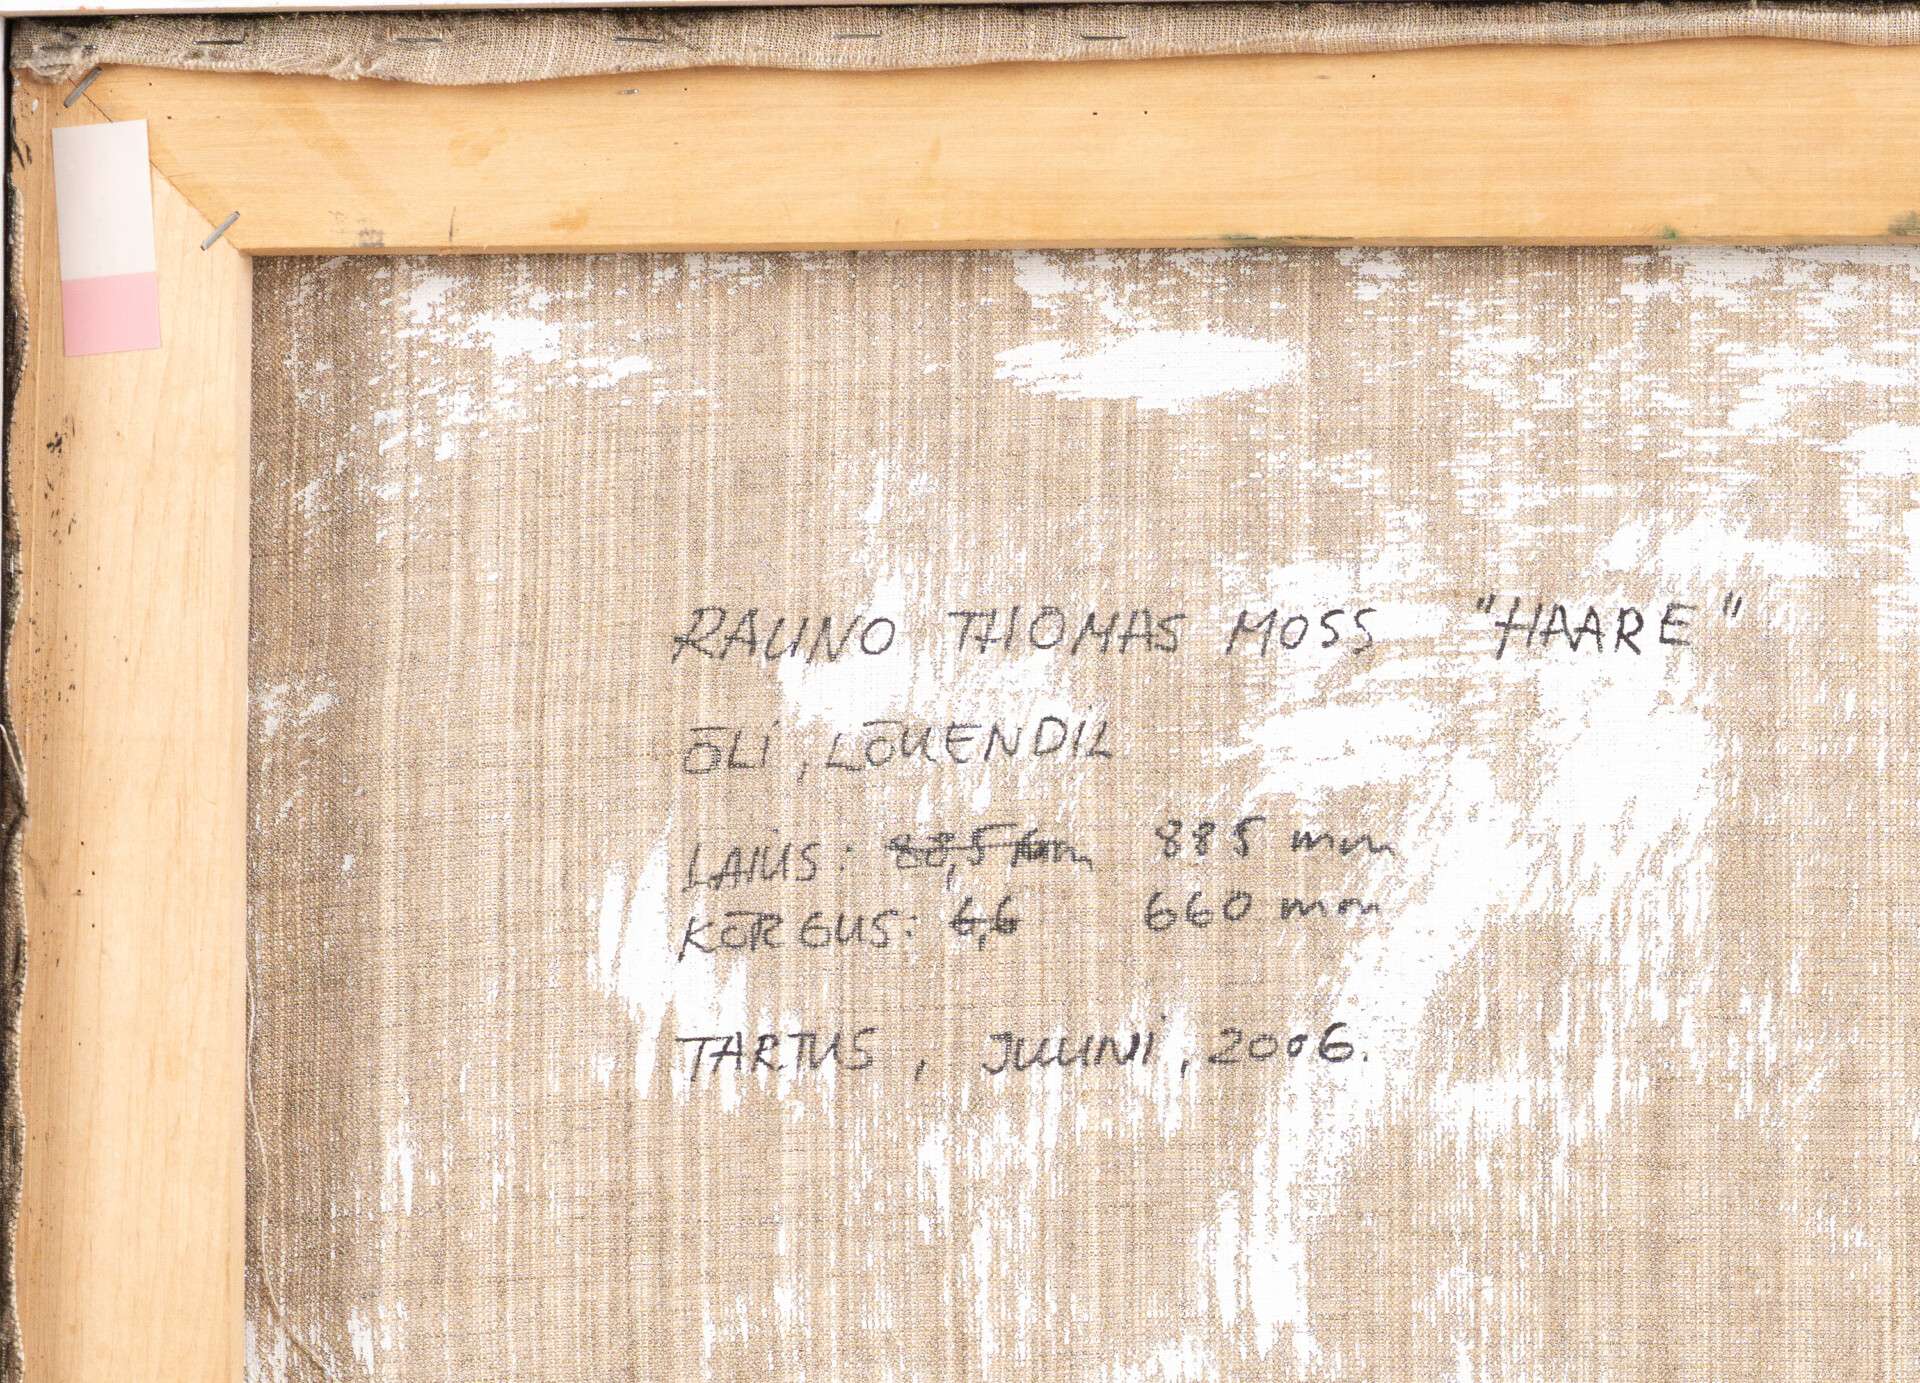 RAUNO THOMAS MOSS "HAARE"
ŌLI, LŌUENDIL
LAIUS: 88,5 885 mm
KŌRGUS: 6,6 660 mm
TARTUS, JUUNI, 2006.